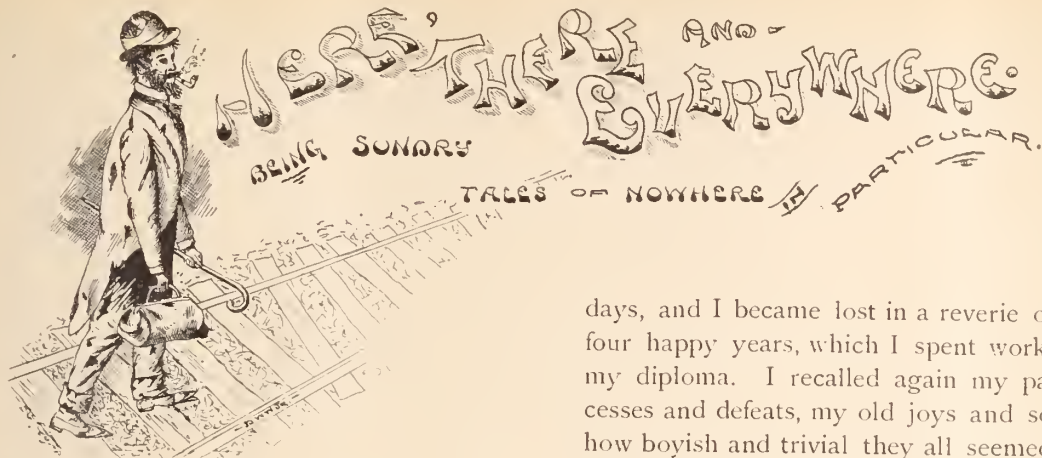 HERE, THERE AND-
EVERYWHERE.
BEING SUNDRY
TALES OF NOWHERE IN PARTICULAR.
days, and I became lost in a reverie o
four happy years, which I spent work
my diploma. I recalled again my pa
cesses and defeats, my old joys and so
how boyish and trivial they all seemed